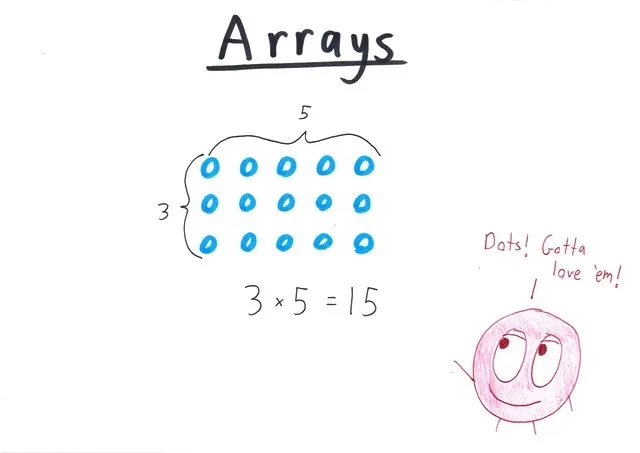 Arrays
5
3
3 × 5 = 15
Dots! Gotta
love 'em!